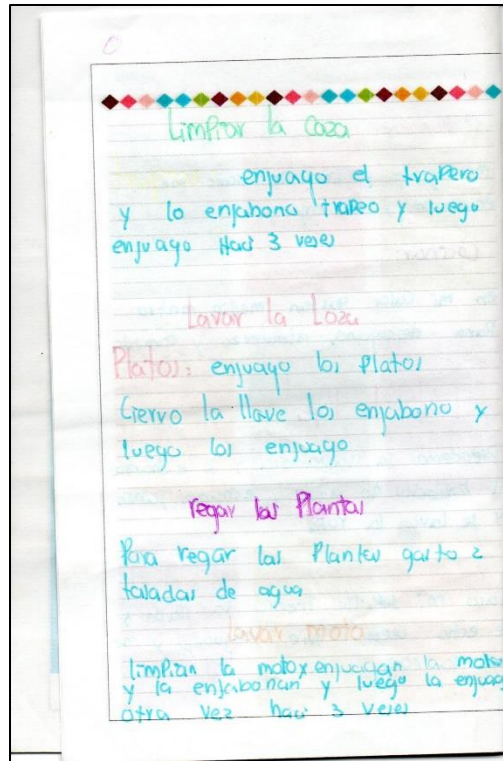 Limpiar la Caza
enjuago el trapero
y lo enjabono trapeo y luego
enjuago Haci 3 veses
Lavar la Loza
Platos: enjuago los platos
Cierro la llave los enjabono y
luego los enjuago
regar las Plantas
Para regar las Plantas gasto 2
taladas de agua
Lavar moto
limpian la moto x enjuagan la moto
y la enjabonan y luego la enjuaga
otra vez haci 3 veses